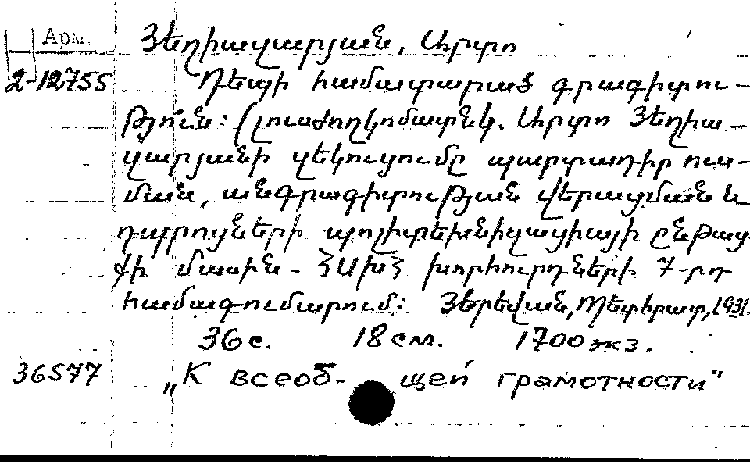 Арм.
Յեղիազարյան, Արտո
2-12755 Դեպի համատարած գրագիտու-
թյուն: (լուսժողկոմարնկ. Արտո Յեղիա-
զարյանի զեկուցումը պարտադիր ուս-
ման, անգրագիտության վերացման և
դպրոցների պոլիտեխնիկացիայի ընթաց
քի մասին - ՀՍԽՀ խորհուրդների 7-րդ
համագումարում: Յերեվան, Պետհրատ, 1931.
36 с. 18 см. 1700 экз.
36577 „К всеоб- щей грамотности"